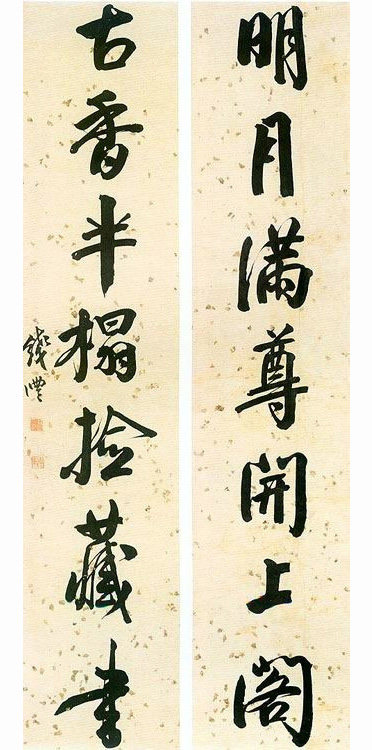 明月滿尊開上閣
古香半榻捡藏书
錢灃